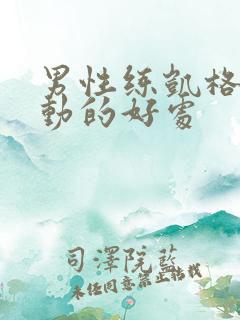 男性练凯格
動的好處
司澤院藍
未经同意禁止搭载